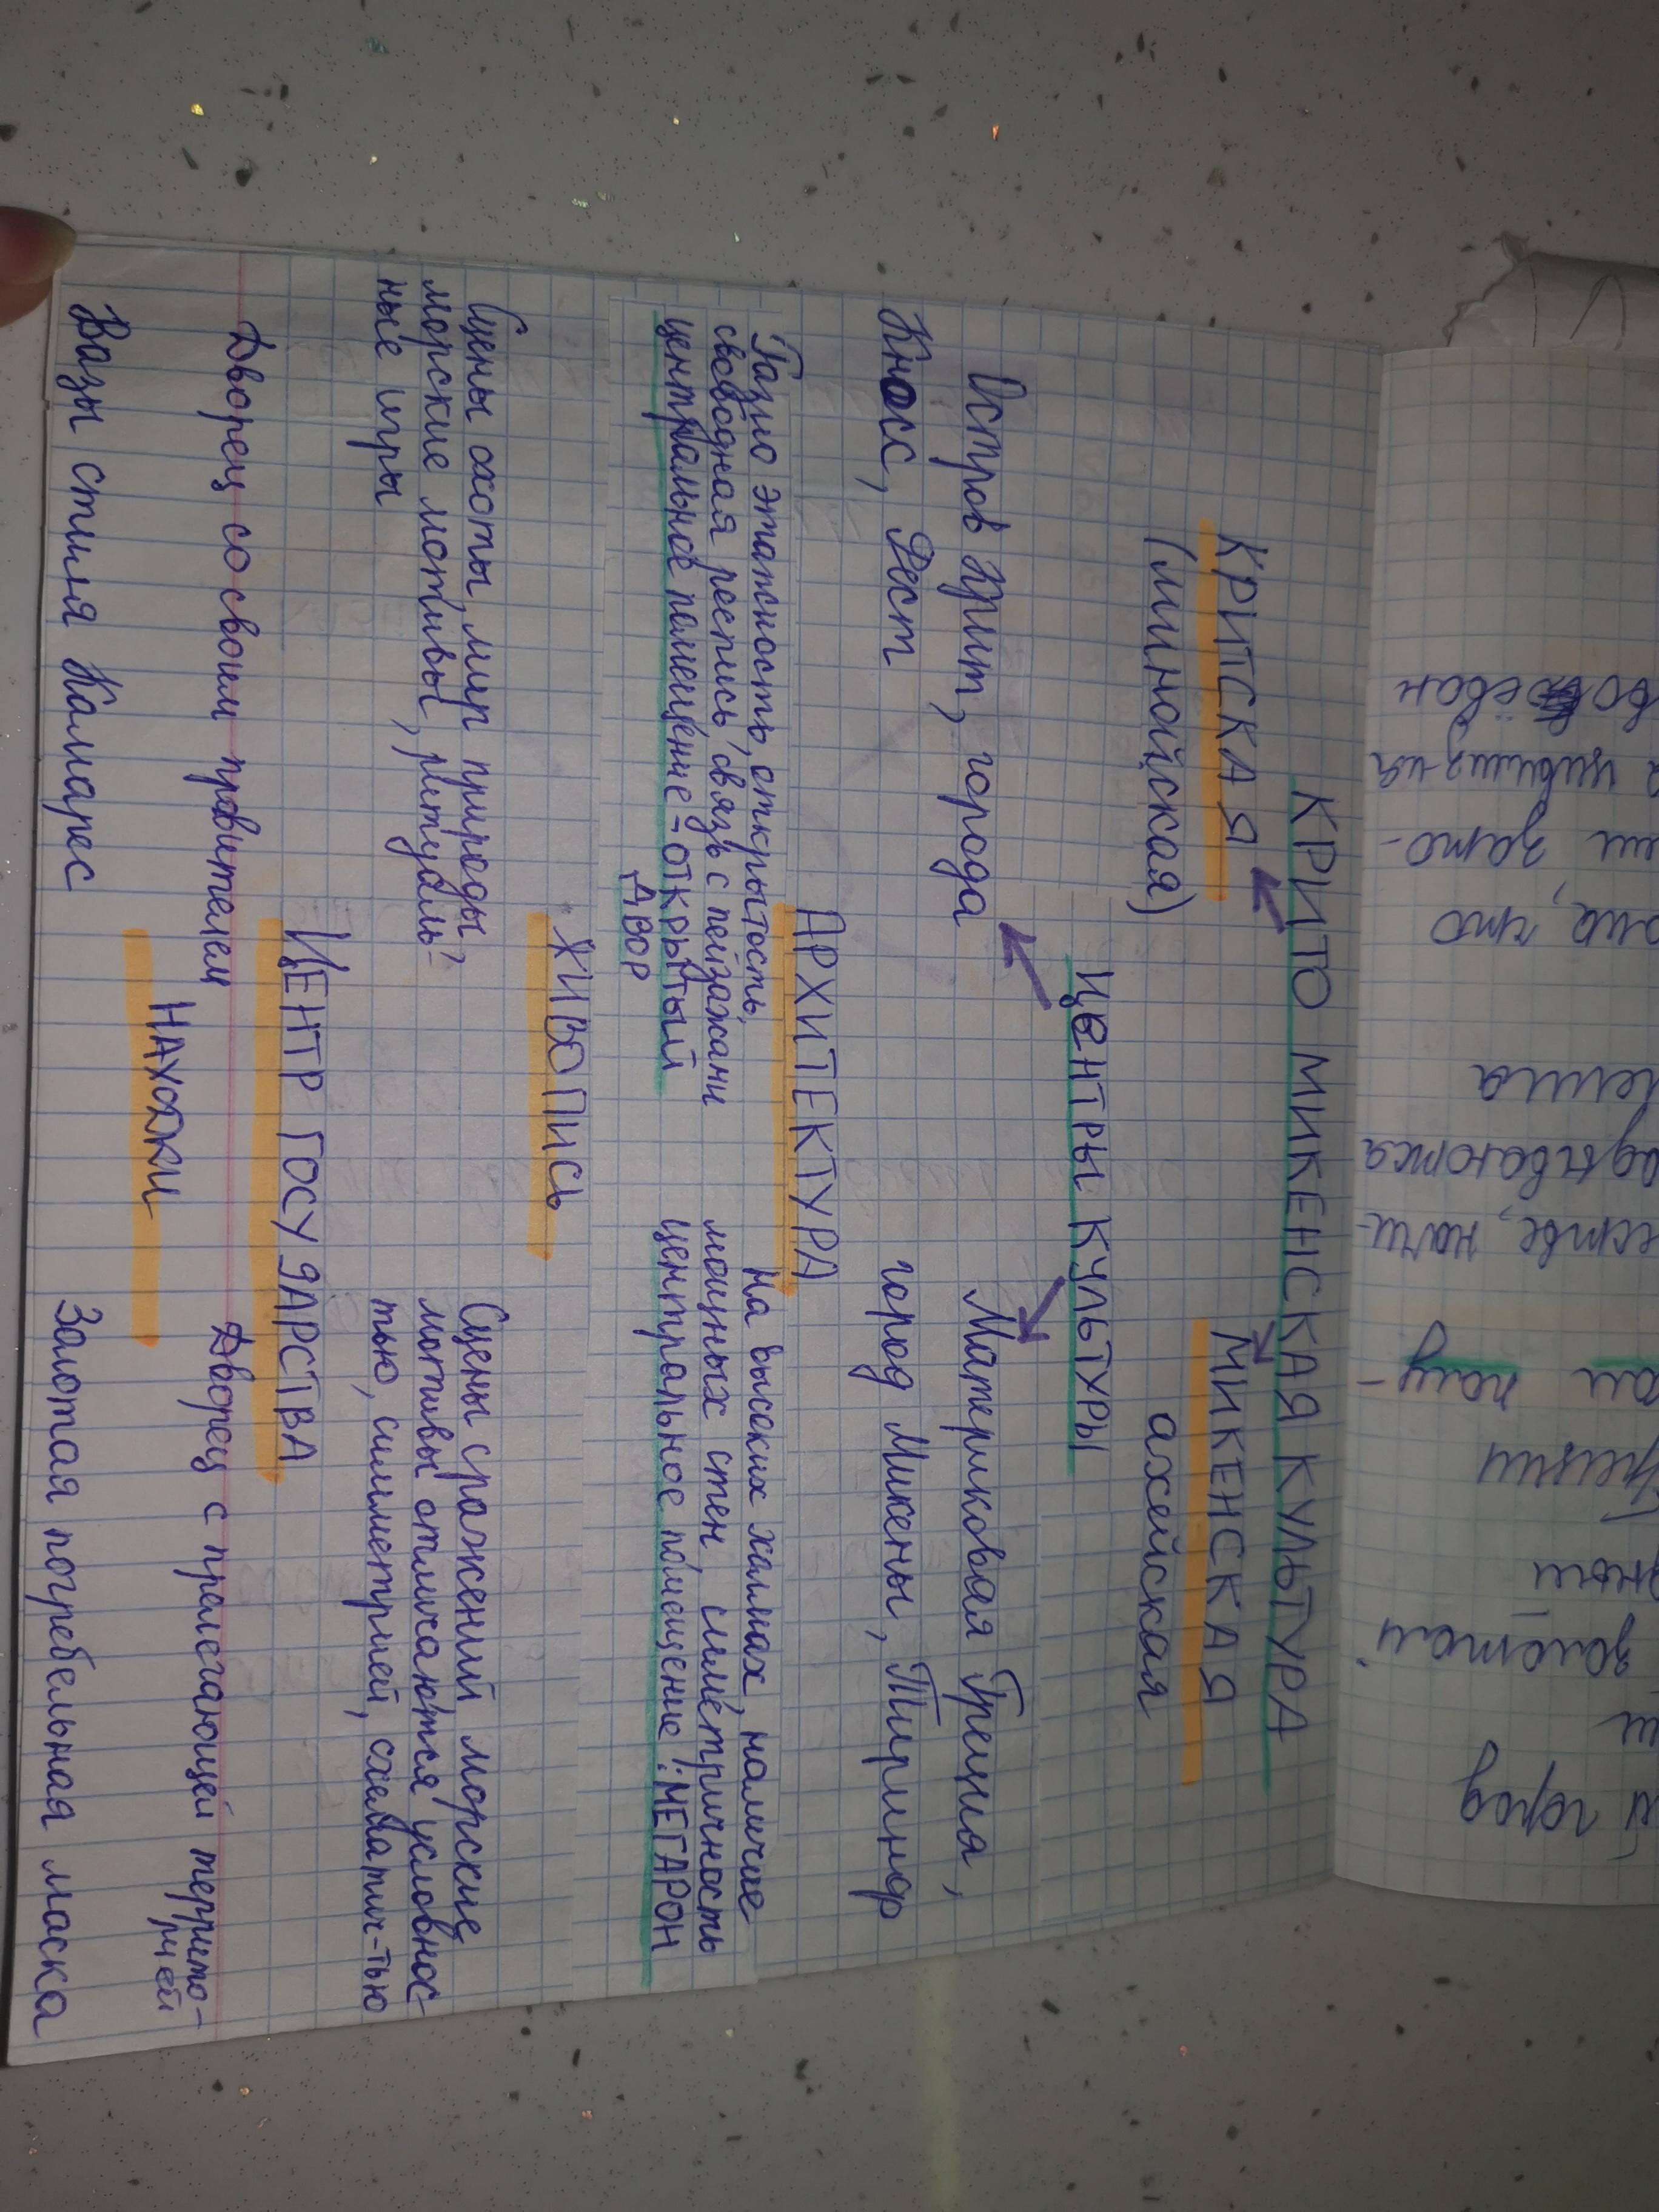 КРИТО МИКЕНСКАЯ КУЛЬТУРА
КРИТСКАЯ
(минойская)
МИКЕНСКАЯ
ахейская
ЦЕНТРЫ КУЛЬТУРЫ
Остров Крит, города
Кносс, Фест
Материковая Греция,
город Микены, Тиринф
АРХИТЕКТУРА
Разно этажность, открытость,
свободная роспись, связь с пейзажами
центральное помещение - ОТКРЫТЫЙ
ДВОР
На высоких холмах, наличие
мощных стен, симетричность
центральное помещение: МЕГАРОН
ЖИВОПИСЬ
Сцены охоты, мир природы
морские мотивы, ритуаль-
ные игры
Сцены сражений морские
мотивы отличаются условнос-
тью, симметрией, схематич-тью
ЦЕНТР ГОСУДАРСТВА
Дворец со своим правителем
Дворец с прилегающей террито-
рией
НАХОДКИ
Вазы стиля Камарес
Золотая погребельная маска
город
золотом
полу-
естве, начи-
адываются
что
цивилиз-ия